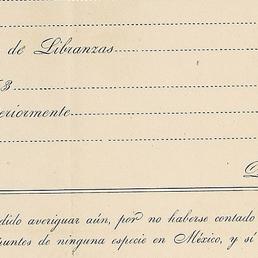 de Libranzas
eriormente
dido averiguar aún, por no haberse contado
puntes de ninguna especie en México, y sí